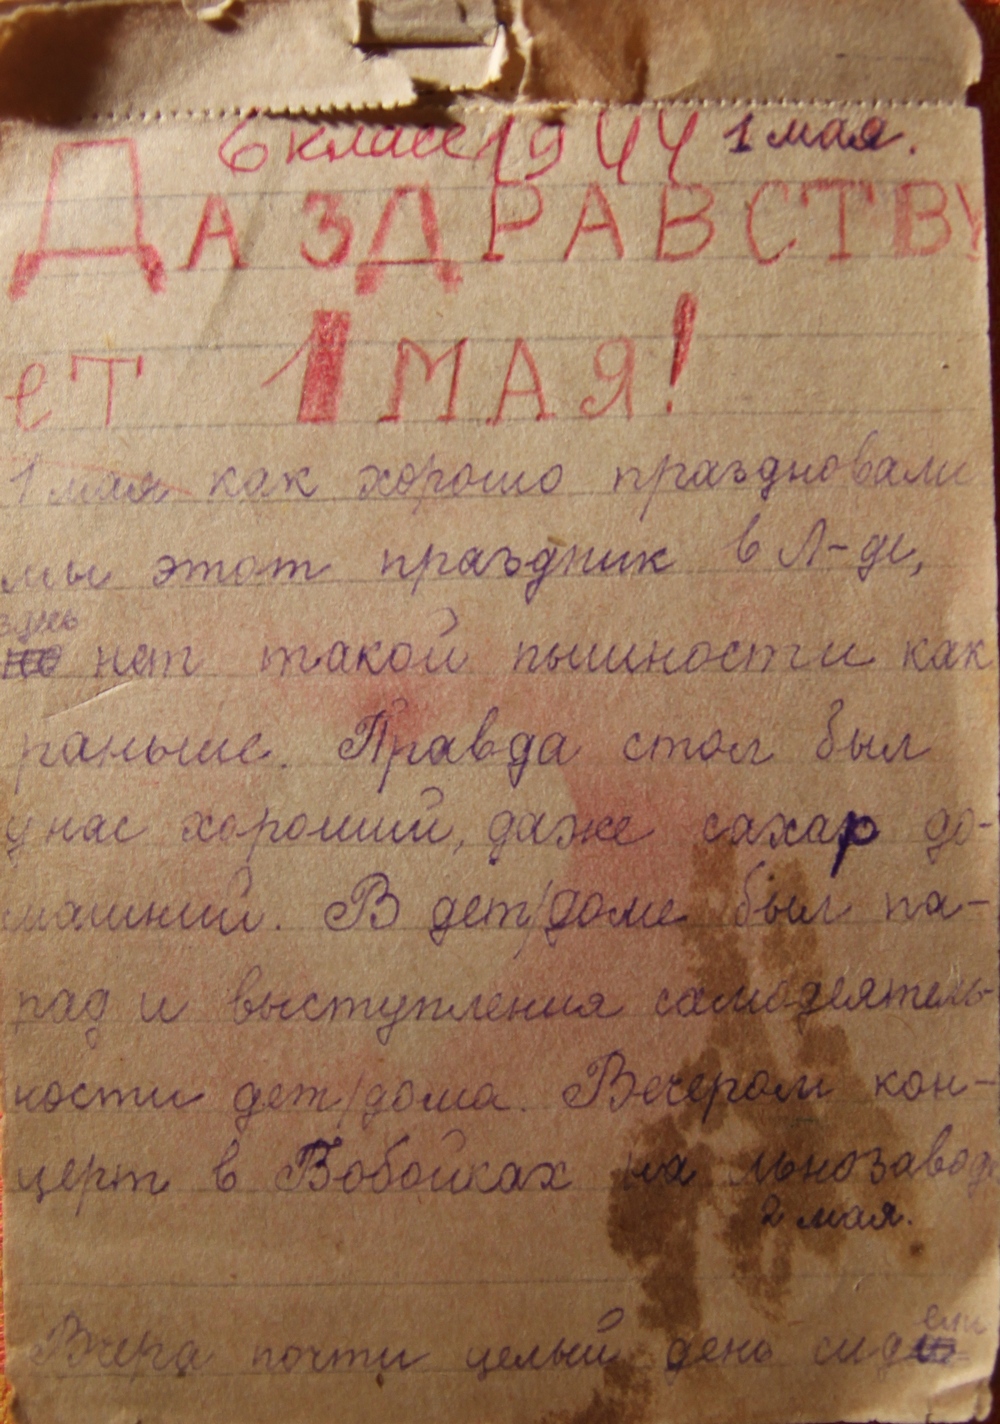 6 класс 1944 1 мая.
ДА ЗДРАВСТВУ
ет 1 МАЯ!
1 мая как хорошо праздновали
мы этот праздник в Л-де,
здесь
нет такой пышности как
раньше. Правда стол был
у нас хороший, даже сахар до-
машний. В дет/доме был па-
рад и выступления самодеятель-
ности дет/дома. Вечером кон-
церт в Бобойках на льнозаводе
2 мая.
Вчера почти целый день сидели